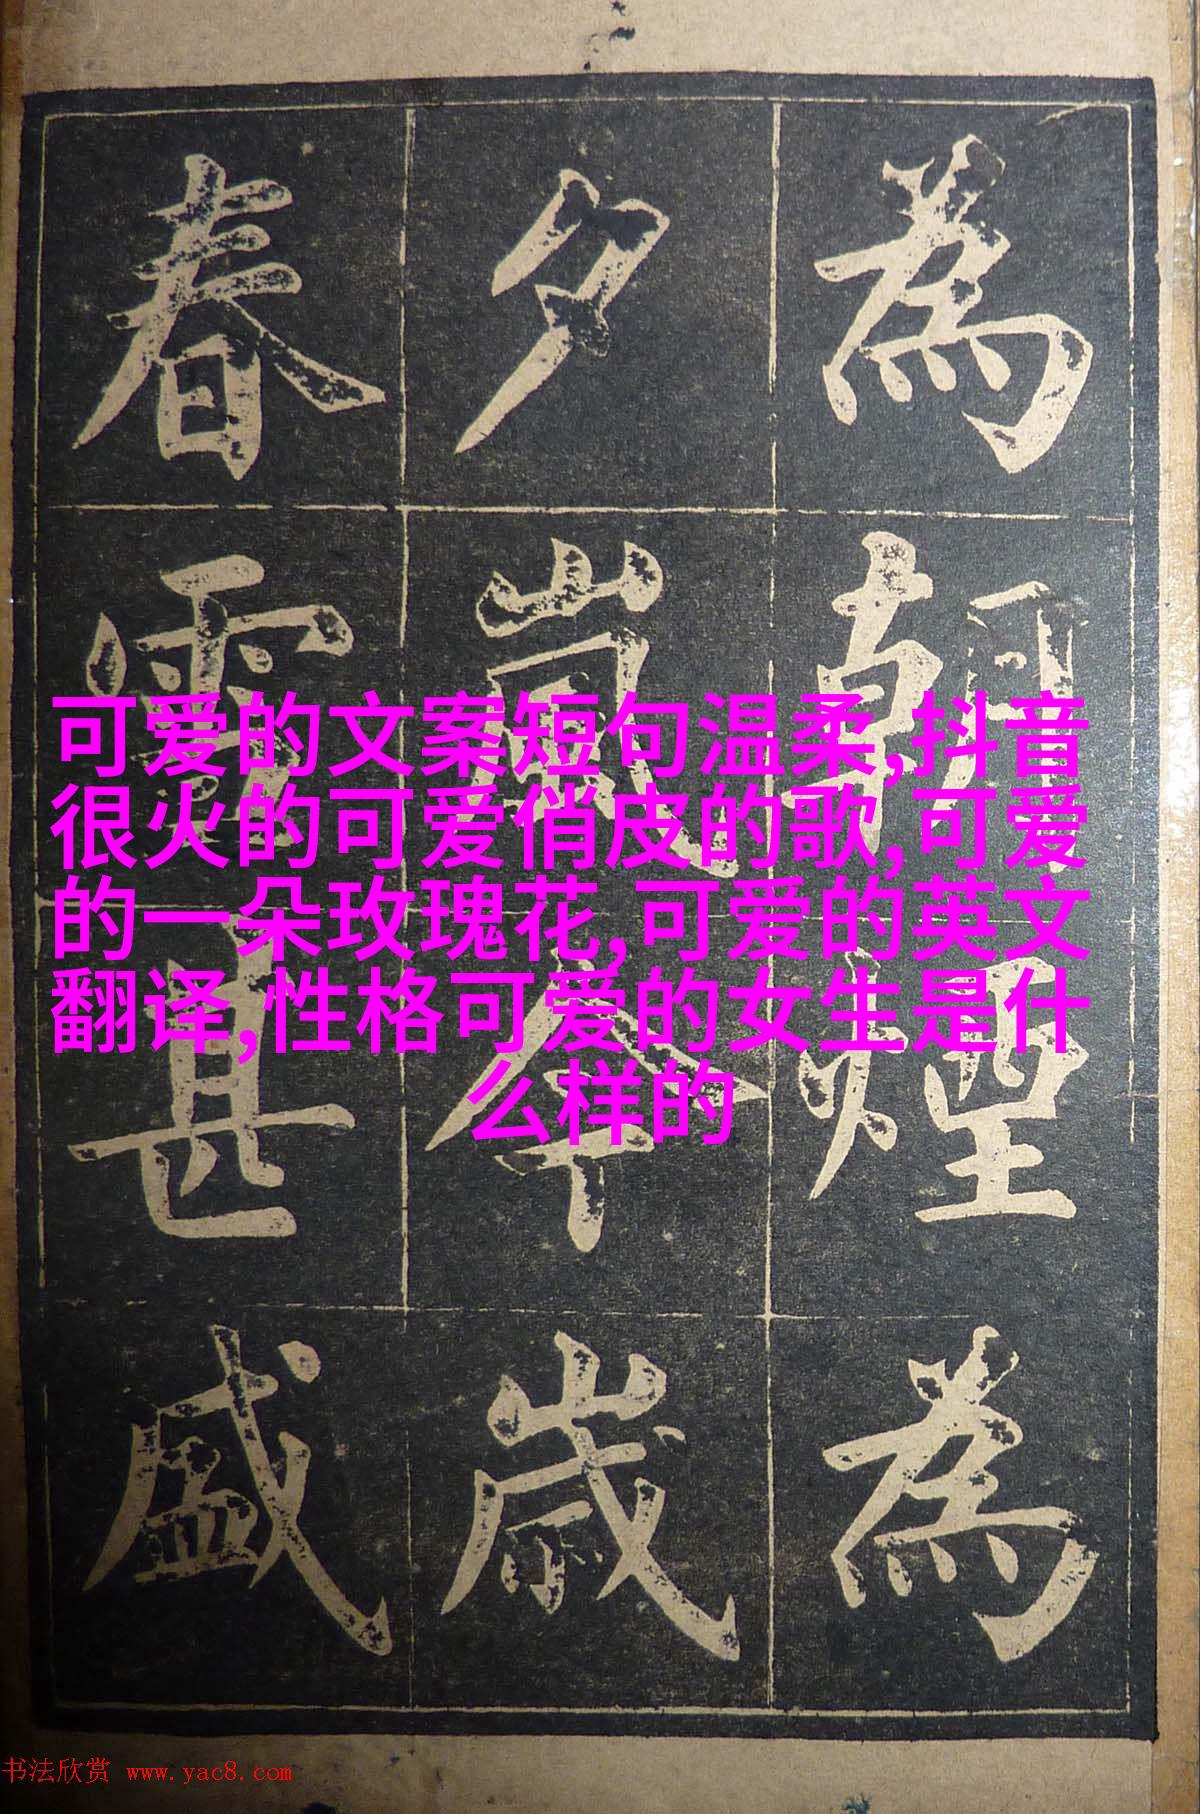 為朝煙為
夕嵐今歳
春雪甚盛
可爱的文案短句温柔,抖音
很火的可爱俏皮的歌,可爱
的一朵玫瑰花,可爱的英文
翻译,性格可爱的女生是什
么样的
书法欣赏 www.yac8.com